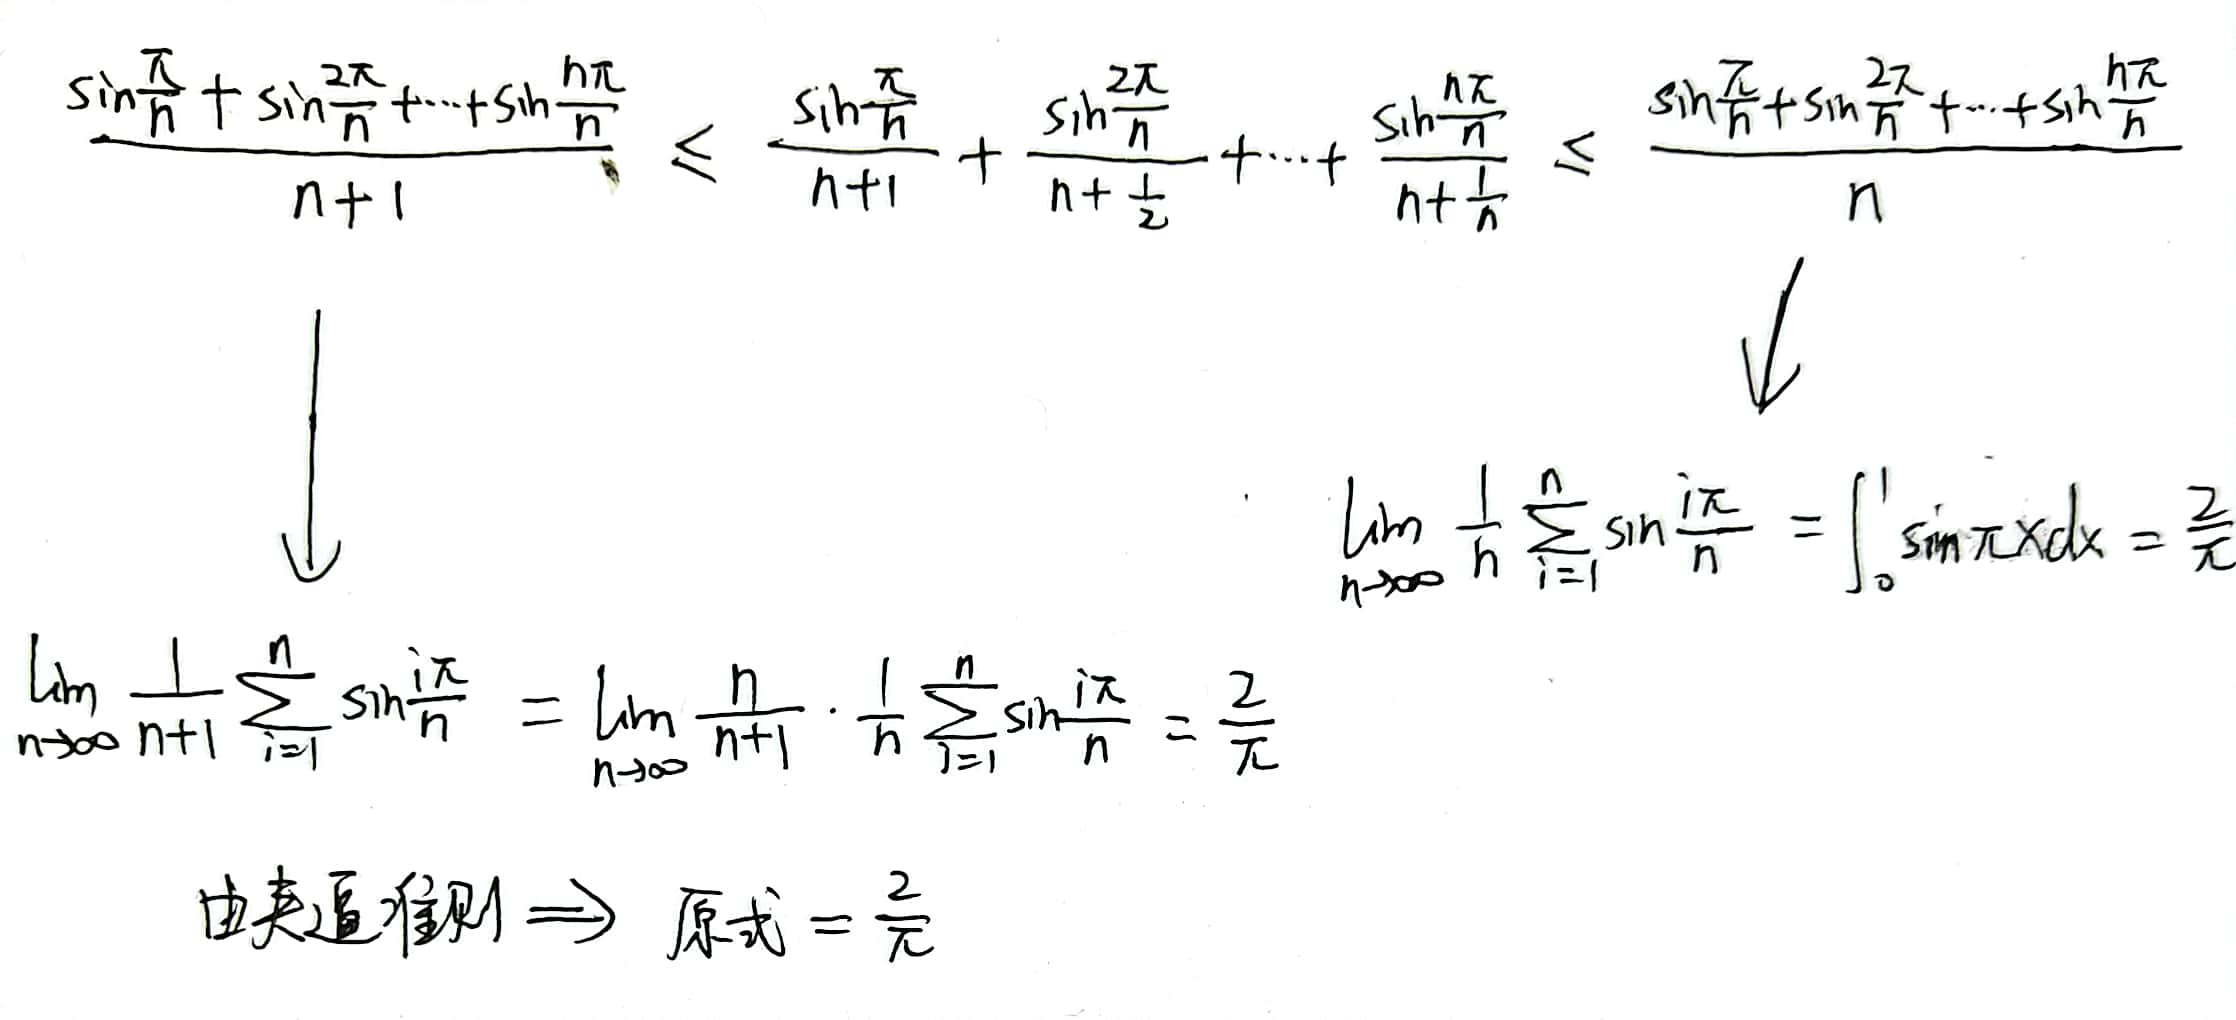 $\frac{\sin\frac{\pi}{n}+\sin\frac{2\pi}{n}+\cdots+\sin\frac{n\pi}{n}}{n+1} \leq \frac{\sin\frac{\pi}{n}}{n+1}+\frac{\sin\frac{2\pi}{n}}{n+\frac{1}{2}}+\cdots+\frac{\sin\frac{n\pi}{n}}{n+\frac{1}{n}} \leq \frac{\sin\frac{\pi}{n}+\sin\frac{2\pi}{n}+\cdots+\sin\frac{n\pi}{n}}{n}$
$\lim_{n\to\infty}\frac{1}{n}\sum_{i=1}^{n}\sin\frac{i\pi}{n}=\int_0^1\sin\pi x dx=\frac{2}{\pi}$
$\lim_{n\to\infty}\frac{1}{n+1}\sum_{i=1}^{n}\sin\frac{i\pi}{n}=\lim_{n\to\infty}\frac{n}{n+1}\cdot\frac{1}{n}\sum_{i=1}^{n}\sin\frac{i\pi}{n}=\frac{2}{\pi}$
由夹逼准则 ⇒ 原式 = $\frac{2}{\pi}$